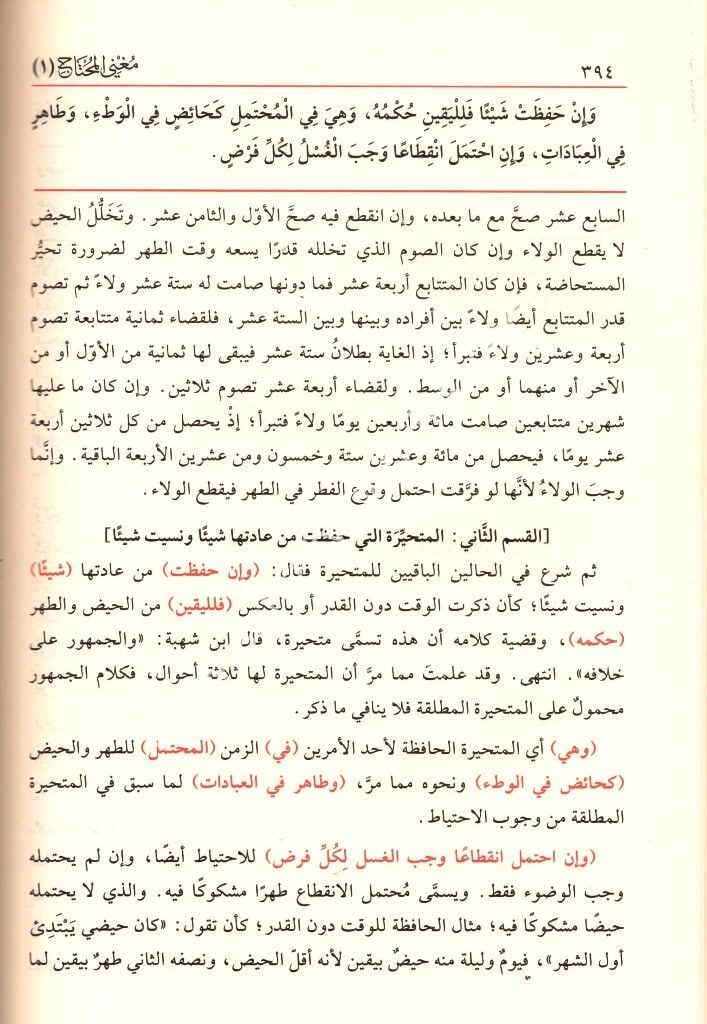 ٣٩٤
مُغْنِي المُحْتَاج (١)
وَإِنْ حَفِظَتْ شَيْئًا فَلِلْيَقِينِ حُكْمُهُ، وَهِيَ فِي الْمُحْتَمِلِ كَحَائِضٍ فِي الْوَطْءِ، وَطَاهِرٍ
فِي الْعِبَادَاتِ، وَإِنِ احْتَمَلَ انْقِطَاعًا وَجَبَ الْغُسْلُ لِكُلِّ فَرْضٍ.
السابع عشر صحَّ مع ما بعده، وإن انقطع فيه صحَّ الأوّل والثامن عشر. وتَخَلُّلُ الحيض
لا يقطع الولاء وإن كان الصوم الذي تخلله قدرًا يسعه وقت الطهر لضرورة تحيُّر
المستحاضة، فإن كان المتتابع أربعة عشر فما دونها صامت له ستة عشر ولاءً ثم تصوم
قدر المتتابع أيضًا ولاءً بين أفراده وبينها وبين الستة عشر، فلقضاء ثمانية متتابعة تصوم
أربعة وعشرين ولاءً فتبرأ؛ إذ الغاية بطلانُ ستة عشر فيبقى لها ثمانية من الأوّل أو من
الآخر أو منهما أو من الوسط. ولقضاء أربعة عشر تصوم ثلاثين. وإن كان ما عليها
شهرين متتابعين صامت مائة وأربعين يومًا ولاءً فتبرأ؛ إذْ يحصل من كل ثلاثين أربعة
عشر يومًا، فيحصل من مائة وعشرين ستة وخمسون ومن عشرين الأربعة الباقية. وإنَّما
وجبَ الولاءُ لأنَّها لو فرَّقت احتمل وقوع الفطر في الطهر فيقطع الولاء.
[القسم الثَّاني: المتحيِّرَة التي حفظت من عادتها شيئًا ونسيت شيئًا]
ثم شرع في الحالين الباقيين للمتحيرة فقال: (وإن حفظت) من عادتها (شيئًا)
ونسيت شيئًا؛ كأن ذكرت الوقت دون القدر أو بالعكس (فلليقين) من الحيض والطهر
(حكمه)، وقضية كلامه أن هذه تسمَّى متحيرة، قال ابن شهبة: «والجمهور على
خلافه». انتهى. وقد علمتَ مما مرَّ أن المتحيرة لها ثلاثة أحوال، فكلام الجمهور
محمولٌ على المتحيرة المطلقة فلا ينافي ما ذكر.
(وهي) أي المتحيرة الحافظة لأحد الأمرين (في) الزمن (المحتمل) للطهر والحيض
(كحائض في الوطء) ونحوه مما مرَّ، (وطاهر في العبادات) لما سبق في المتحيرة
المطلقة من وجوب الاحتياط.
(وإن احتمل انقطاعًا وجب الغسل لِكُلِّ فرض) للاحتياط أيضًا، وإن لم يحتمله
وجب الوضوء فقط. ويسمَّى مُحتمل الانقطاع طهرًا مشكوكًا فيه. والذي لا يحتمله
حيضًا مشكوكًا فيه؛ مثال الحافظة للوقت دون القدر؛ كأن تقول: «كان حيضي يَبْتَدِئ
أول الشهر»، فيومٌ وليلة منه حيضٌ بيقين لأنه أقلّ الحيض، ونصفه الثاني طهرٌ بيقين لما